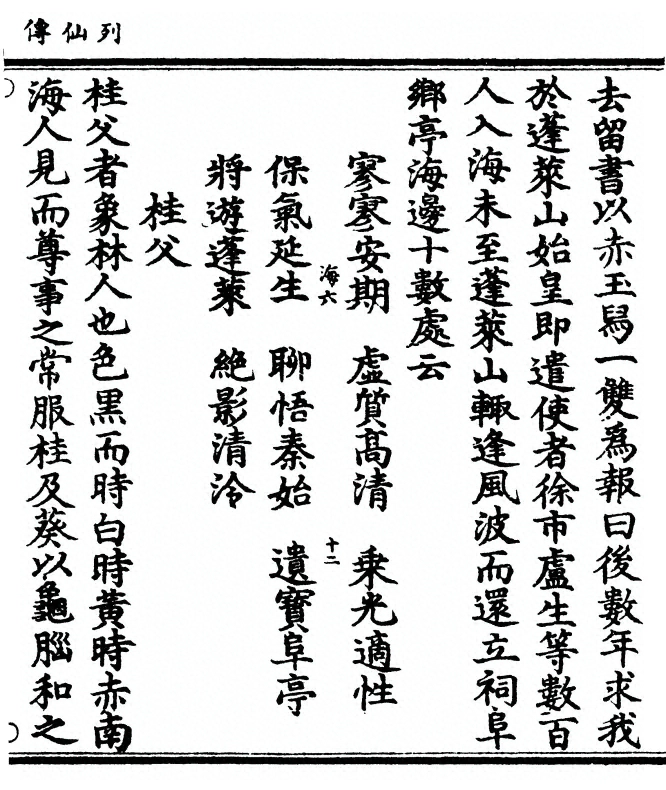 列仙傳
去留書以赤玉舄一雙爲報曰後數年求我
於蓬萊山始皇即遣使者徐市盧生等數百
人入海未至蓬萊山輙逢風波而還立祠阜
鄉亭海邊十數處云
寥寥安期　虛質高清　乗光適性
海六　十二
保氣延生　聊悟秦始　遺寶阜亭
將遊蓬萊　絶影清泠
桂父
桂父者象林人也色黑而時白時黃時赤南
海人見而尊事之常服桂及葵以龜腦和之